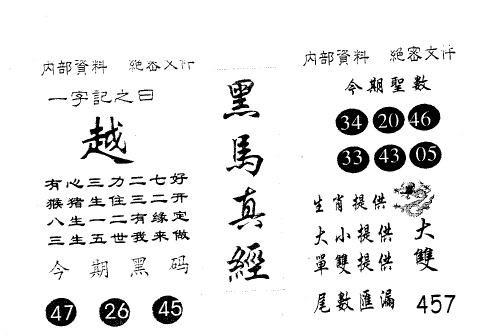 内部資料 絕密文件
一字記之曰
越
有心三力二七好
猴猪生住三二开
八生一二有缘定
三生五世我来做
今期黑码
47 26 45
黑馬真經
内部資料 絕密文件
今期聖數
34 20 46
33 43 05
生肖提供
大小提供 大
單雙提供 雙
尾數匯漏 457